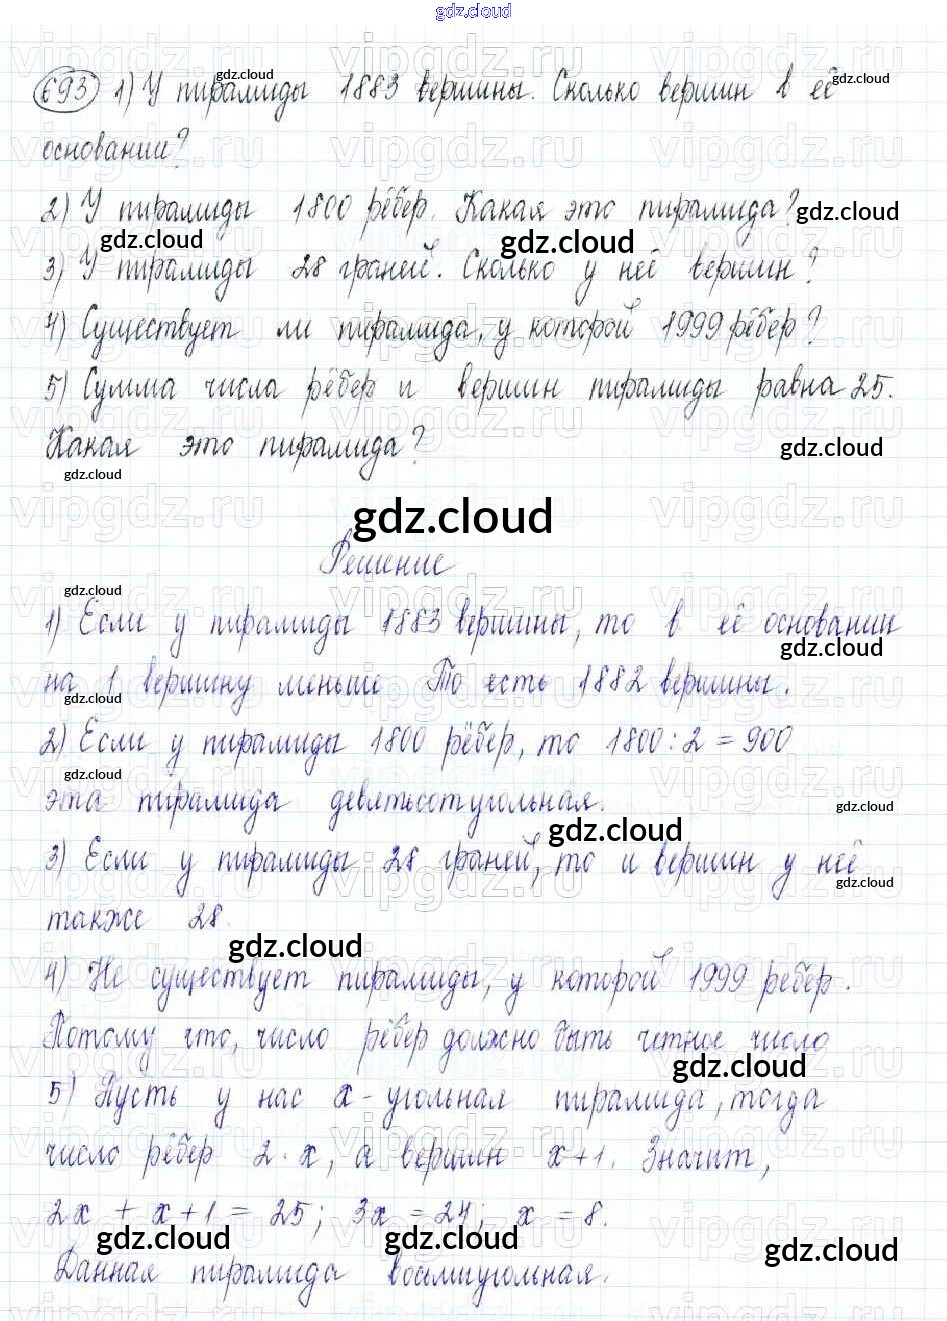 gdz.cloud
693 1) У пирамиды 1883 вершины. Сколько вершин в её
основании?
2) У пирамиды 1800 рёбер. Какая это пирамида?
3) У пирамиды 28 граней. Сколько у неё вершин?
4) Существует ли пирамида, у которой 1999 рёбер?
5) Сумма числа рёбер и вершин пирамиды равна 25.
Какая это пирамида?
gdz.cloud
Решение
1) Если у пирамиды 1883 вершины, то в её основании
на 1 вершину меньше То есть 1882 вершины.
2) Если у пирамиды 1800 рёбер, то 1800 : 2 = 900
эта пирамида девятьсотугольная.
3) Если у пирамиды 28 граней, то и вершин у неё
также 28.
4) Не существует пирамиды, у которой 1999 ребер.
Потому что, число рёбер должно быть четное число
5) Пусть у нас х - угольная пирамида, тогда
число рёбер 2 · х, а вершин х+1. Значит,
2х + х + 1 = 25; 3х = 24; х = 8.
Данная пирамида восьмиугольная.